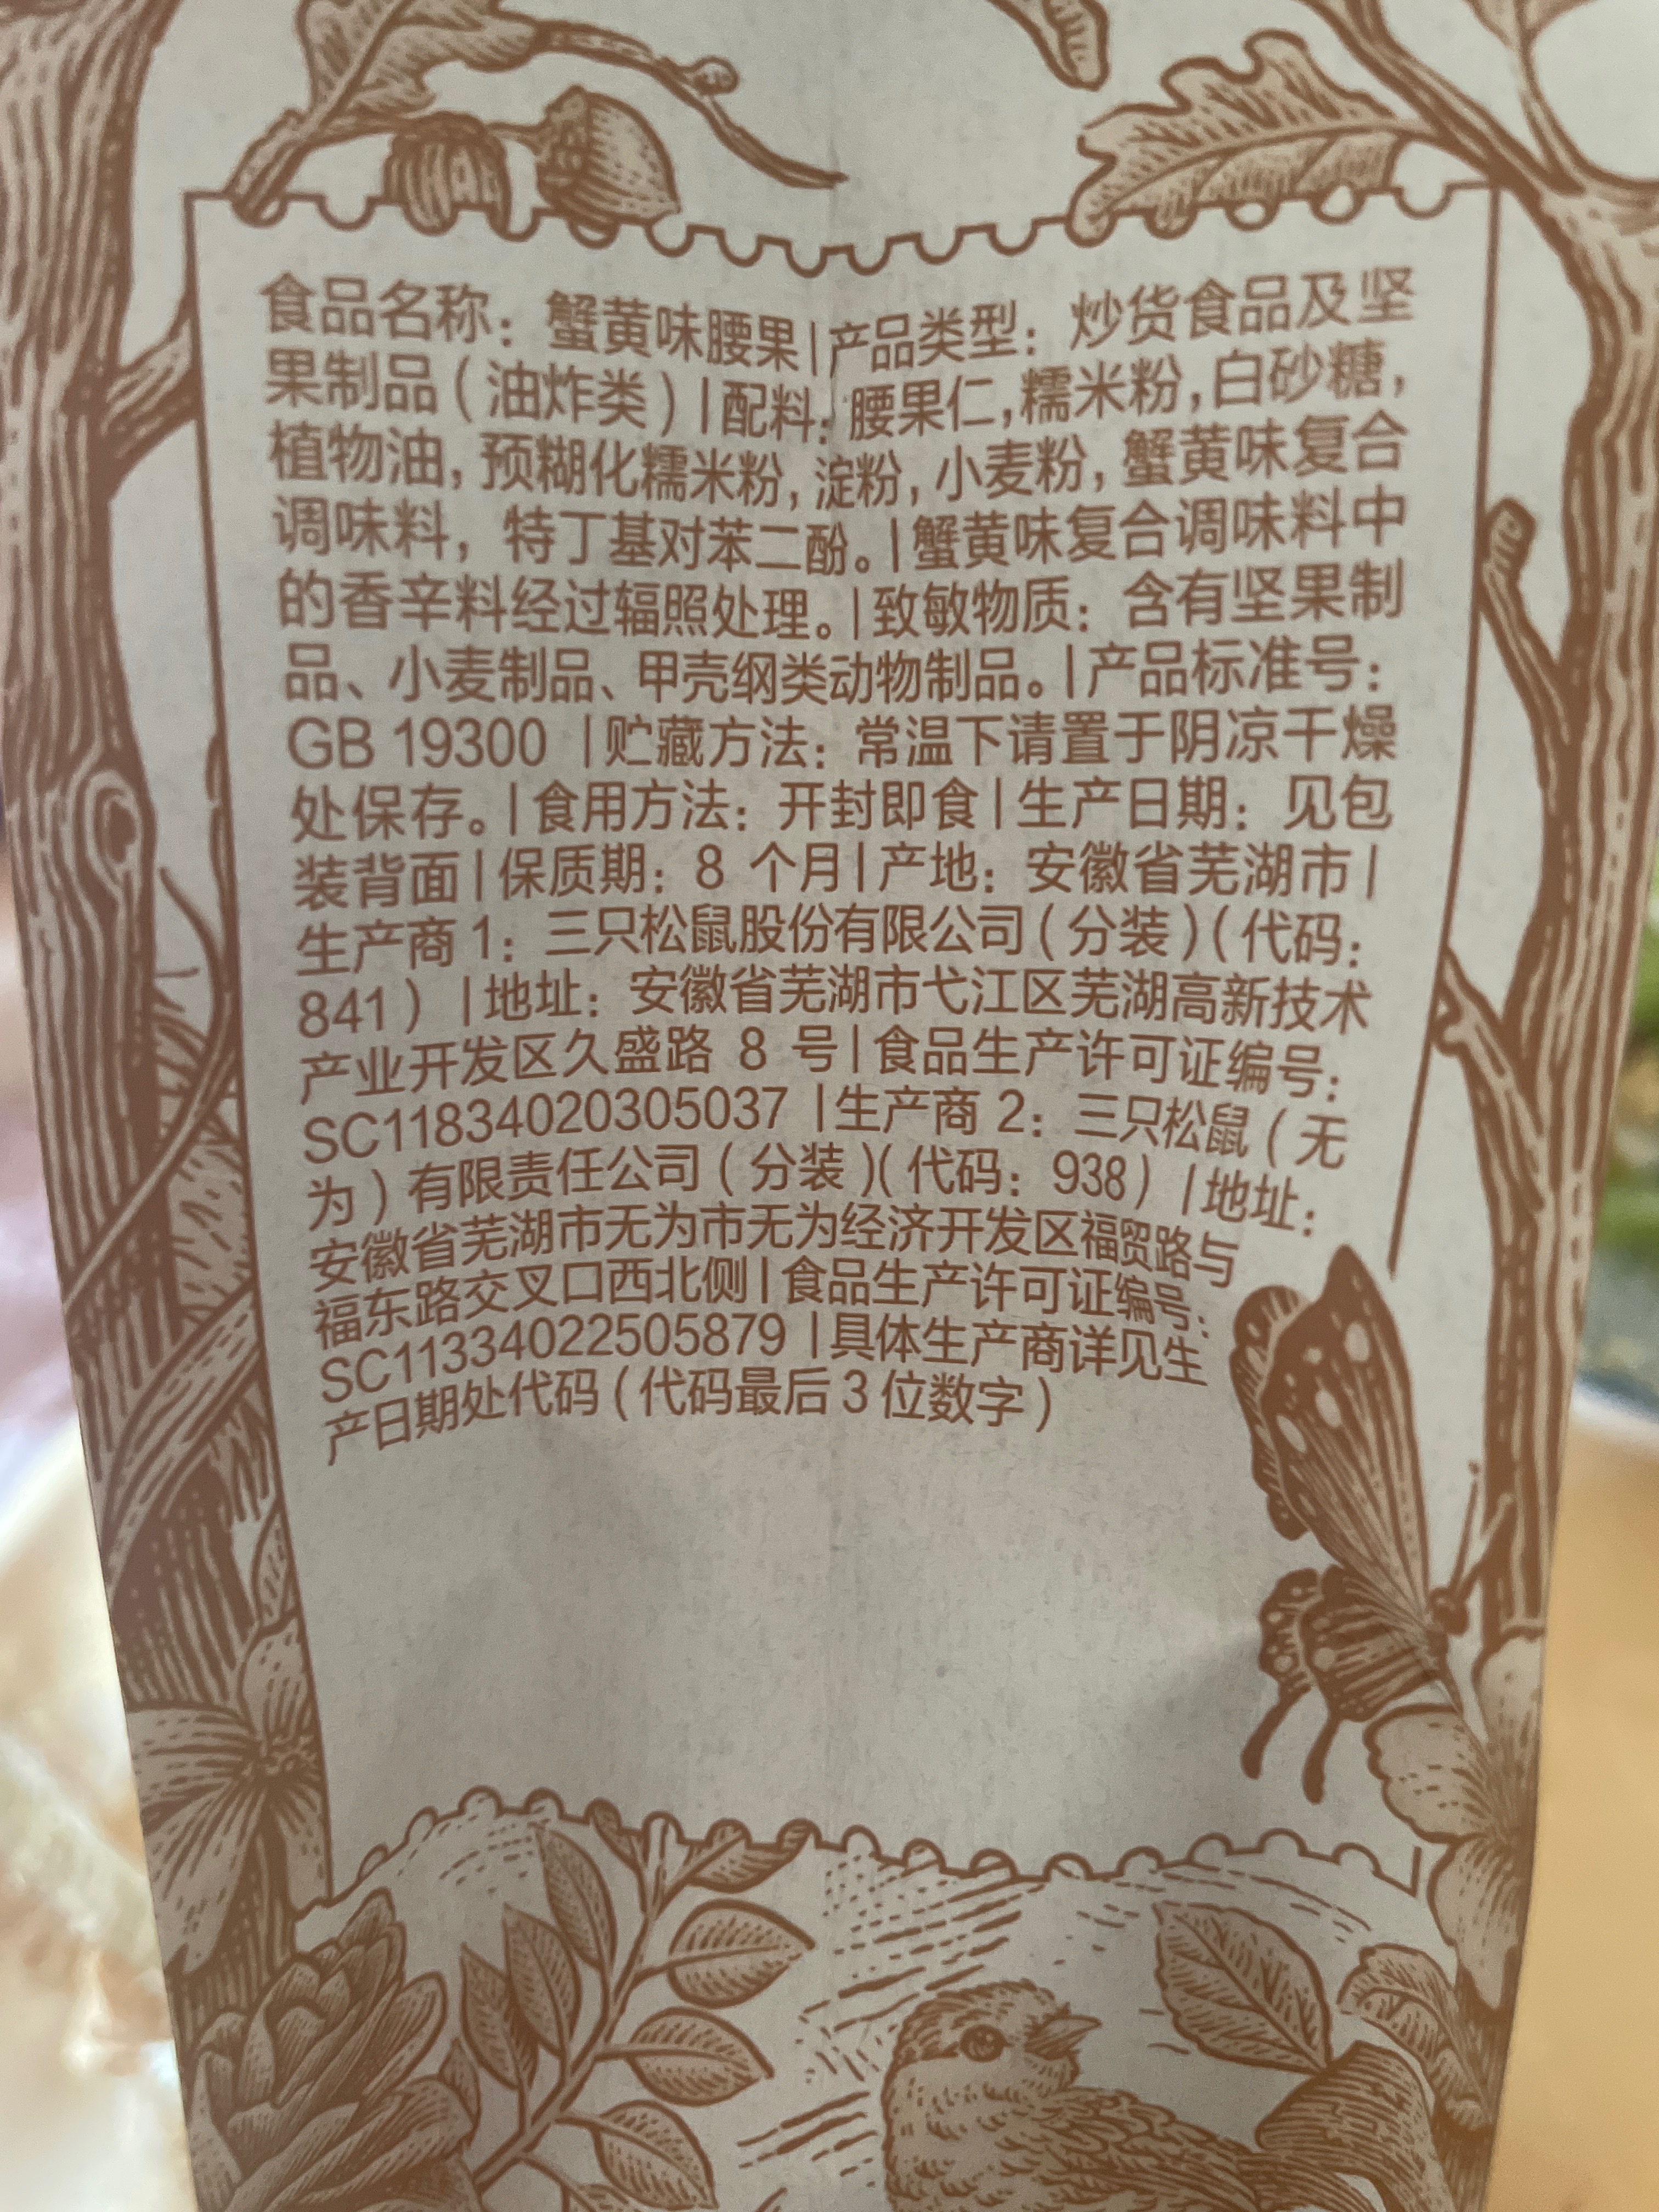 食品名称：蟹黄味腰果|产品类型：炒货食品及坚
果制品(油炸类)|配料：腰果仁,糯米粉,白砂糖,
植物油,预糊化糯米粉,淀粉,小麦粉,蟹黄味复合
调味料，特丁基对苯二酚。|蟹黄味复合调味料中
的香辛料经过辐照处理。|致敏物质：含有坚果制
品、小麦制品、甲壳纲类动物制品。|产品标准号：
GB 19300 |贮藏方法：常温下请置于阴凉干燥
处保存。|食用方法：开封即食|生产日期：见包
装背面|保质期：8 个月|产地：安徽省芜湖市|
生产商1：三只松鼠股份有限公司(分装)(代码：
841) |地址：安徽省芜湖市弋江区芜湖高新技术
产业开发区久盛路 8 号|食品生产许可证编号：
SC11834020305037 |生产商 2：三只松鼠(无
为)有限责任公司(分装)(代码：938) |地址：
安徽省芜湖市无为市无为经济开发区福贸路与
福东路交叉口西北侧|食品生产许可证编号：
SC11334022505879 |具体生产商详见生
产日期处代码(代码最后3位数字)